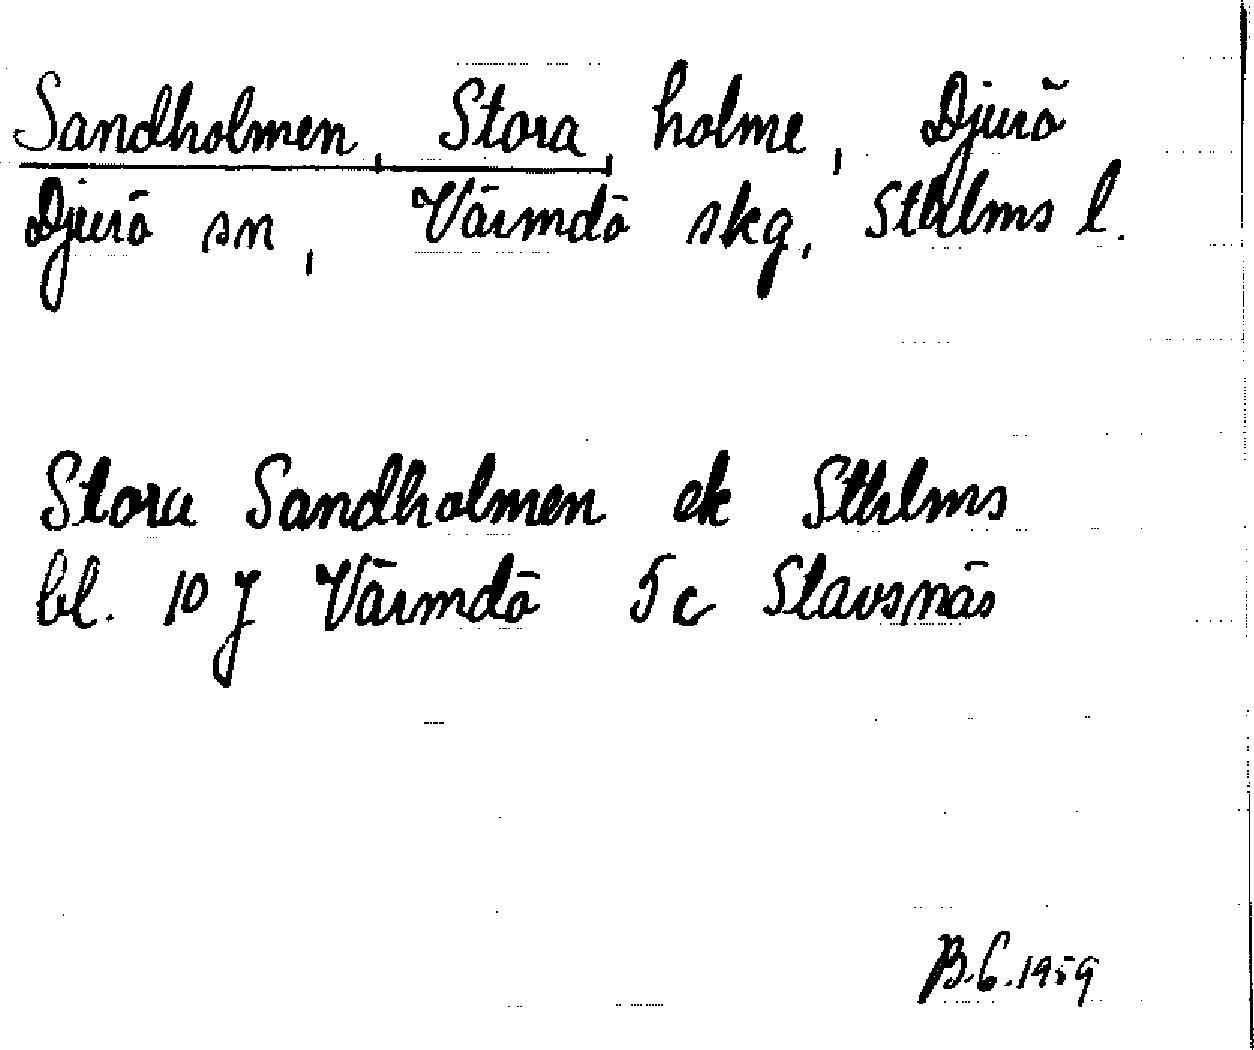 Sandholmen, Stora, holme, Djurö
Djurö sn, Värmdö skg, Sthlms l.
Stora Sandholmen ek Sthlms
bl. 10 J Värmdö 5c Stavsnäs
B.G. 1959